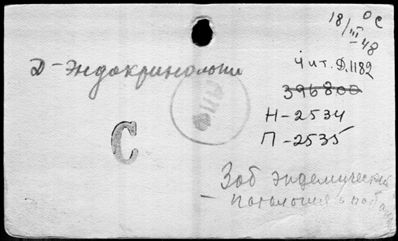 18/III-48 ОС
Д-Эндокринологи
Чит. Д.1182
396800
Н-2534
П-2535
С
Зоб эндемический
- патология